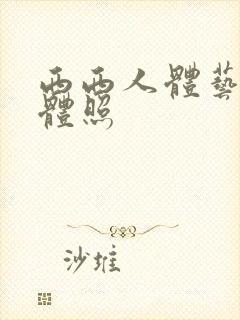 西西人體藝
體照
沙堆